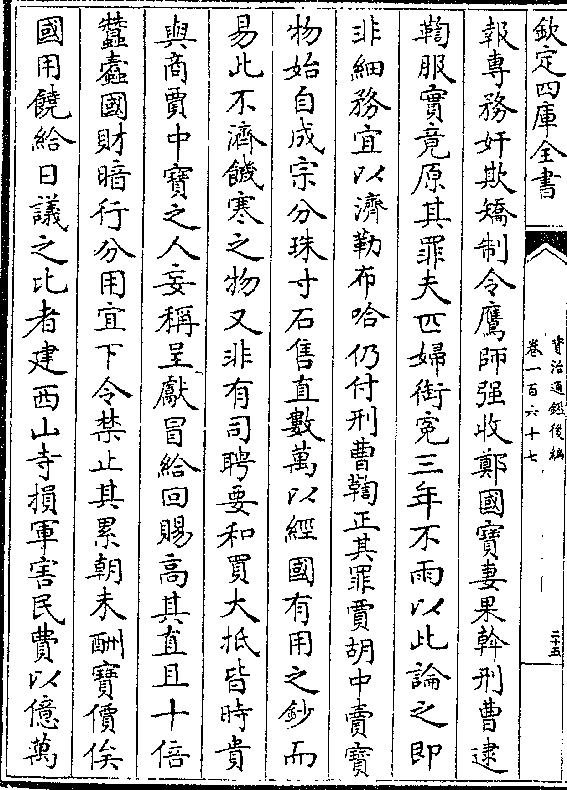 欽定四庫全書
資治通鑑後編
卷一百六十七
二十五
報專務奸欺矯制令鷹師强收鄭國寶妻果斡刑曹逮
鞫服實竟原其罪夫匹婦銜寃三年不雨以此論之即
非細務宜以濟勒布哈仍付刑曹鞫正其罪賈胡中賣寶
物始自成宗分珠寸石售直數萬以經國有用之鈔而
易此不濟饑寒之物又非有司聘要和買大抵皆時貴
與商賈中寶之人妄稱呈獻冒給回賜高其直且十倍
蠶蠧國財暗行分用宜下令禁止其累朝未酬寶價俟
國用饒給日議之比者建西山寺損軍害民費以億萬